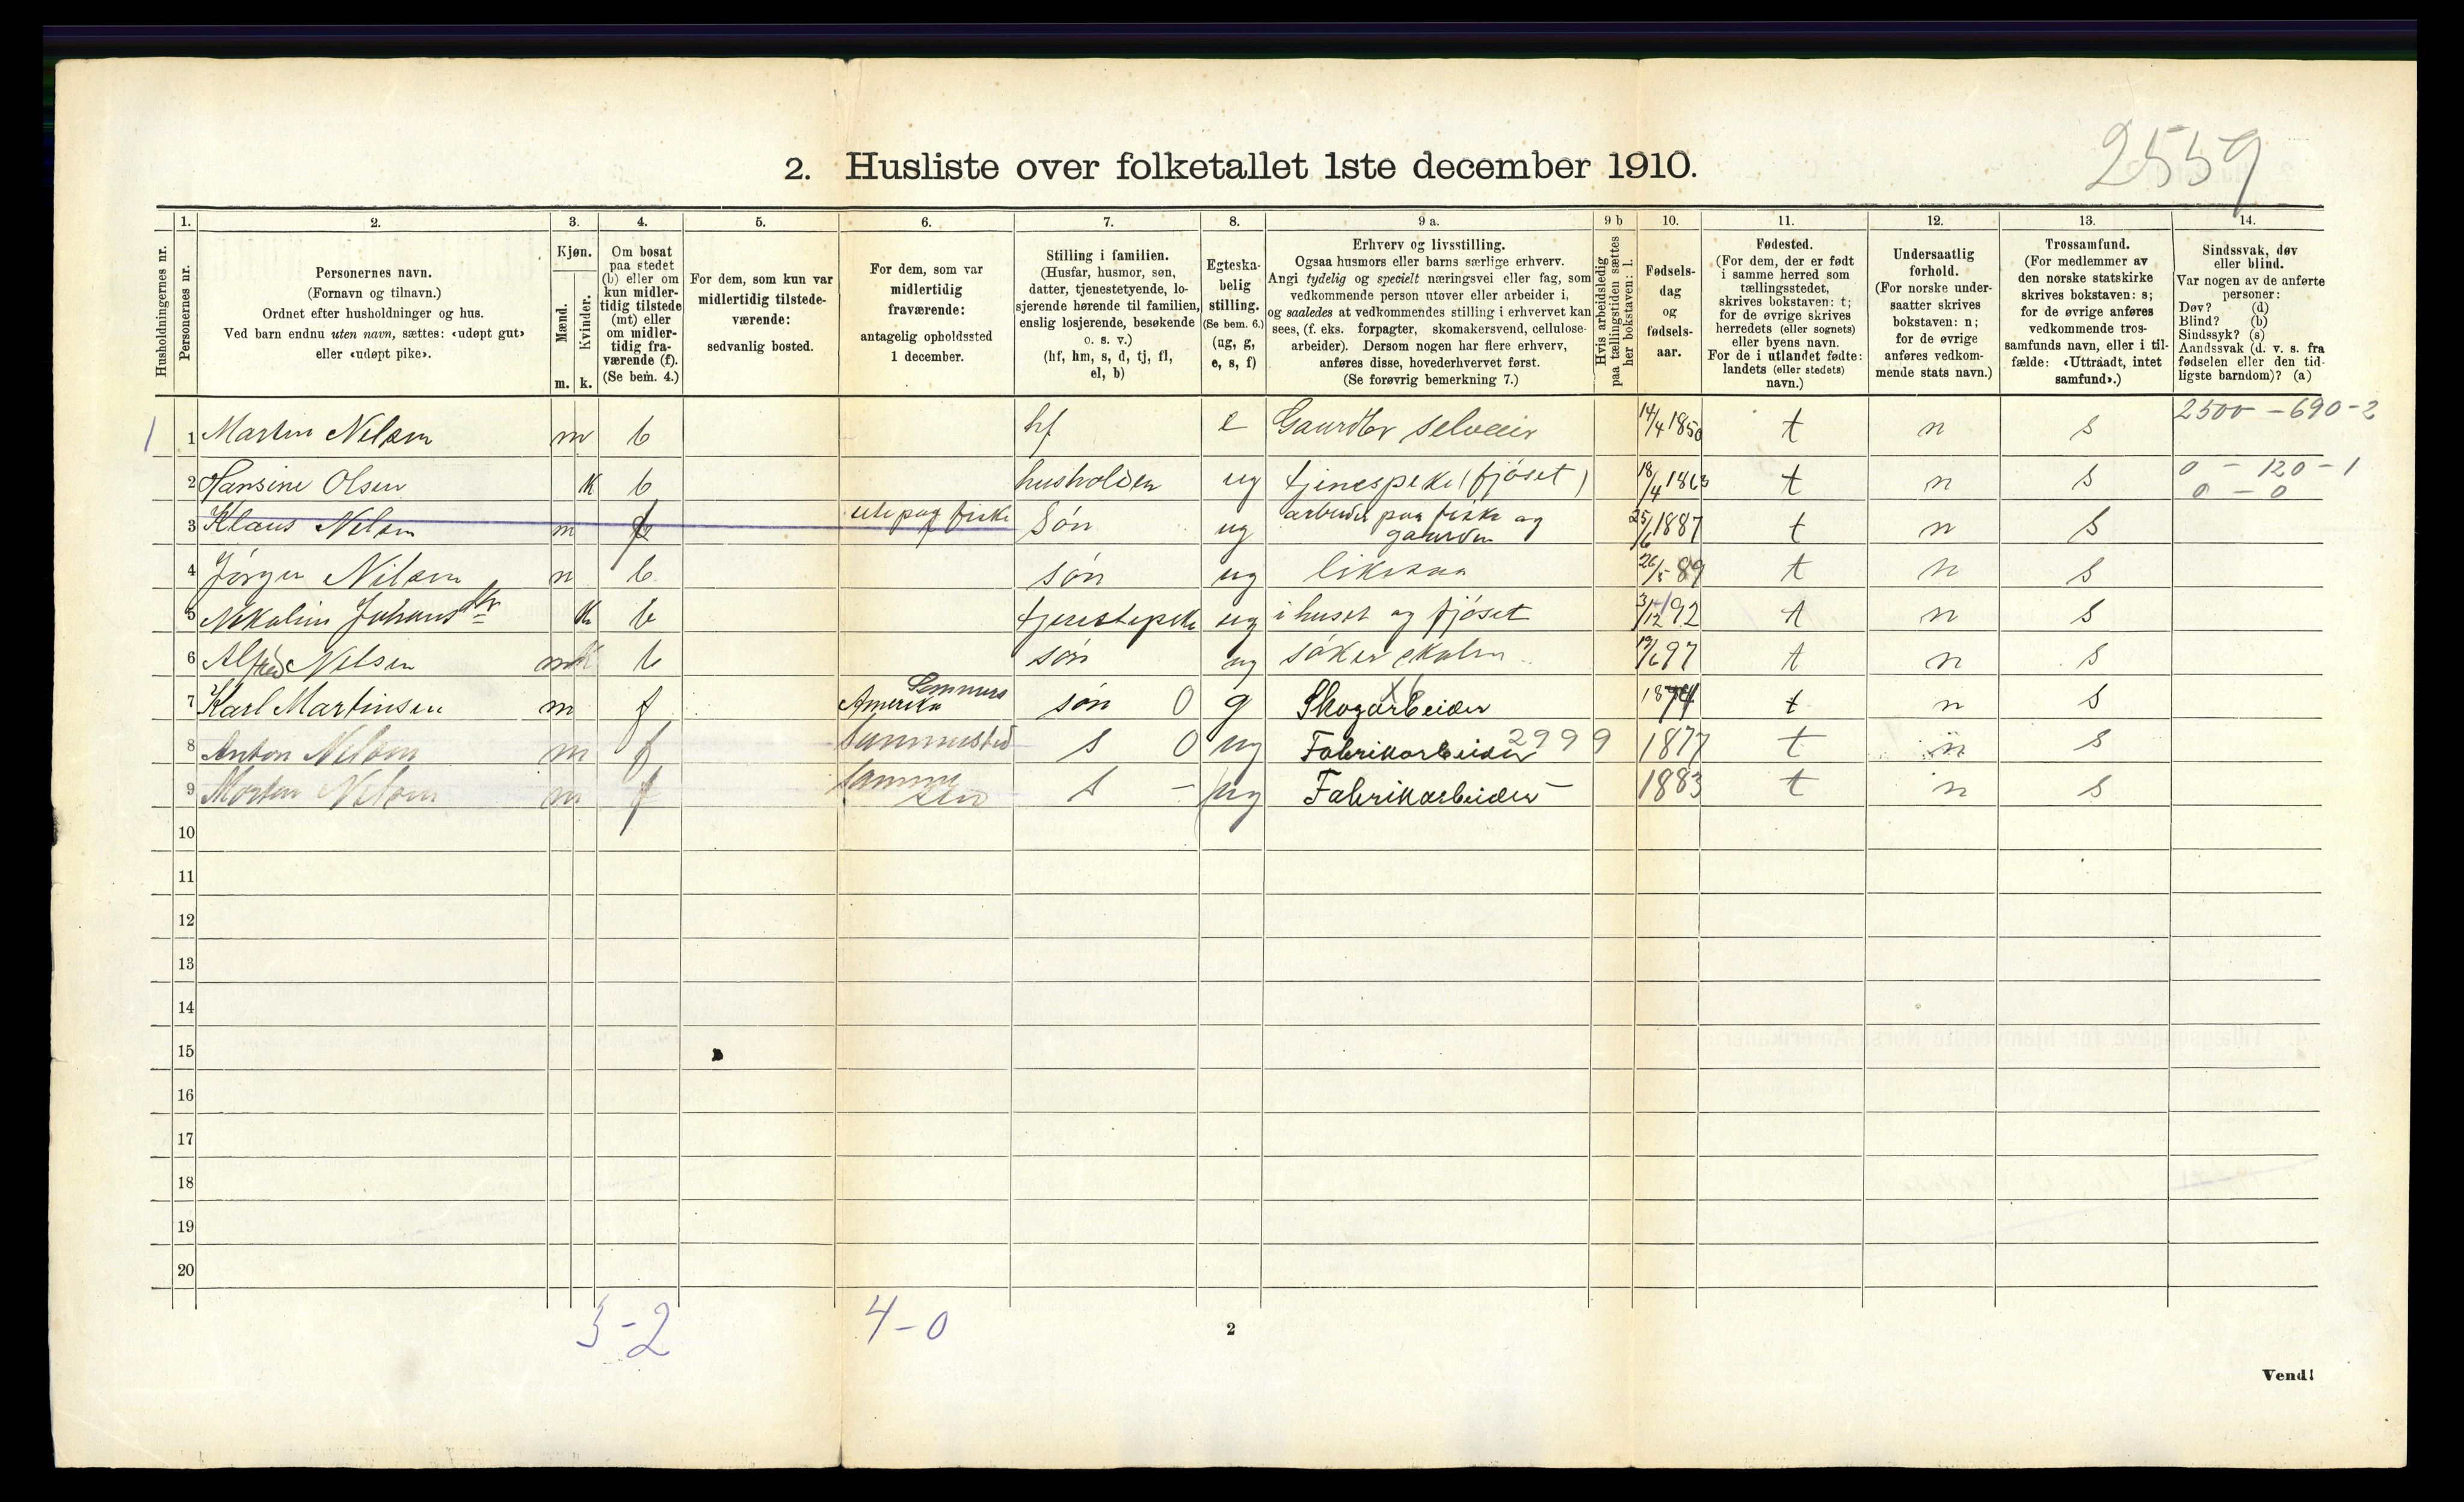 2559
2. Husliste over folketallet 1ste december 1910.
1. 2. 3. 4. 5. 6. 7. 8. 9 a. 9 b 10. 11. 12. 13. 14.
Husholdningernes nr.
Personernes nr.
Personernes navn.
(Fornavn og tilnavn.)
Ordnet efter husholdninger og hus.
Ved barn endnu uten navn, sættes: «udøpt gut»
eller «udøpt pike».
Kjøn.
Mænd.
Kvinder.
m. k.
Om bosat
paa stedet
(b) eller om
kun midler-
tidig tilstede
(mt) eller
om midler-
tidig fra-
værende (f).
(Se bem. 4.)
For dem, som kun var
midlertidig tilstede-
værende:
sedvanlig bosted.
For dem, som var
midlertidig
fraværende:
antagelig opholdssted
1 december.
Stilling i familien.
(Husfar, husmor, søn,
datter, tjenestetyende, lo-
sjerende hørende til familien,
enslig losjerende, besøkende
o. s. v.)
(hf, hm, s, d, tj, fl,
el, b)
Egteska-
belig
stilling.
(Se bem. 6.)
(ug, g,
e, s, f)
Erhverv og livsstilling.
Ogsaa husmors eller barns særlige erhverv.
Angi tydelig og specielt næringsvei eller fag, som
vedkommende person utøver eller arbeider i,
og saaledes at vedkommendes stilling i erhvervet kan
sees, (f. eks. forpagter, skomakersvend, cellulose-
arbeider). Dersom nogen har flere erhverv,
anføres disse, hovederhvervet først.
(Se forøvrig bemerkning 7.)
Hvis arbeidsledig
paa tællingstiden sættes
her bokstaven: l.
Fødsels-
dag
og
fødsels-
aar.
Fødested.
(For dem, der er født
i samme herred som
tællingsstedet,
skrives bokstaven: t;
for de øvrige skrives
herredets (eller sognets)
eller byens navn.
For de i utlandet fødte:
landets (eller stedets)
navn.)
Undersaatlig
forhold.
(For norske under-
saatter skrives
bokstaven: n;
for de øvrige
anføres vedkom-
mende stats navn.)
Trossamfund.
(For medlemmer av
den norske statskirke
skrives bokstaven: s;
for de øvrige anføres
vedkommende tros-
samfunds navn, eller i til-
fælde: «Uttraadt, intet
samfund».)
Sindssvak, døv
eller blind.
Var nogen av de anførte
personer:
Døv? (d)
Blind? (b)
Sindssyk? (s)
Aandssvak (d. v. s. fra
fødselen eller den tid-
ligste barndom)? (a)
1 1 Martin Nilsen m b hf e Gaurdbr selveier 14/4 1850 t n s 2500 - 690 - 2
2 Hansine Olsen k b husholden ug tjenespike (fjöset) 18/4 1863 t n s 0 - 120 - 1
0 - 0
3 Klaus Nilsen m f ute paa fiske Sön ug arbeider paa fiske og
gaurden 25/6 1887 t n s
4 Jörgen Nilsen m b sön ug likesaa 26/5 89 t n s
5 Nikoline Johansdtr k b tjenestepike ug i huset og fjöset 3/12 92 t n s
6 Alfred Nilsen m b sön ug söker skolen 19/6 97 t n s
7 Karl Martinsen m f Amerika sön 0 g Skogarbeider t n s
8 Anton Nilsen m f Sammested s 0 ug Fabrikarbeider 2999 1877 t n s
9 Morten Nilsen m f samme sted s - ug Fabrikarbeider - 1883 t n s
10
11
12
13
14
15
16
17
18
19
20
5-2 4-0
2
Vend!